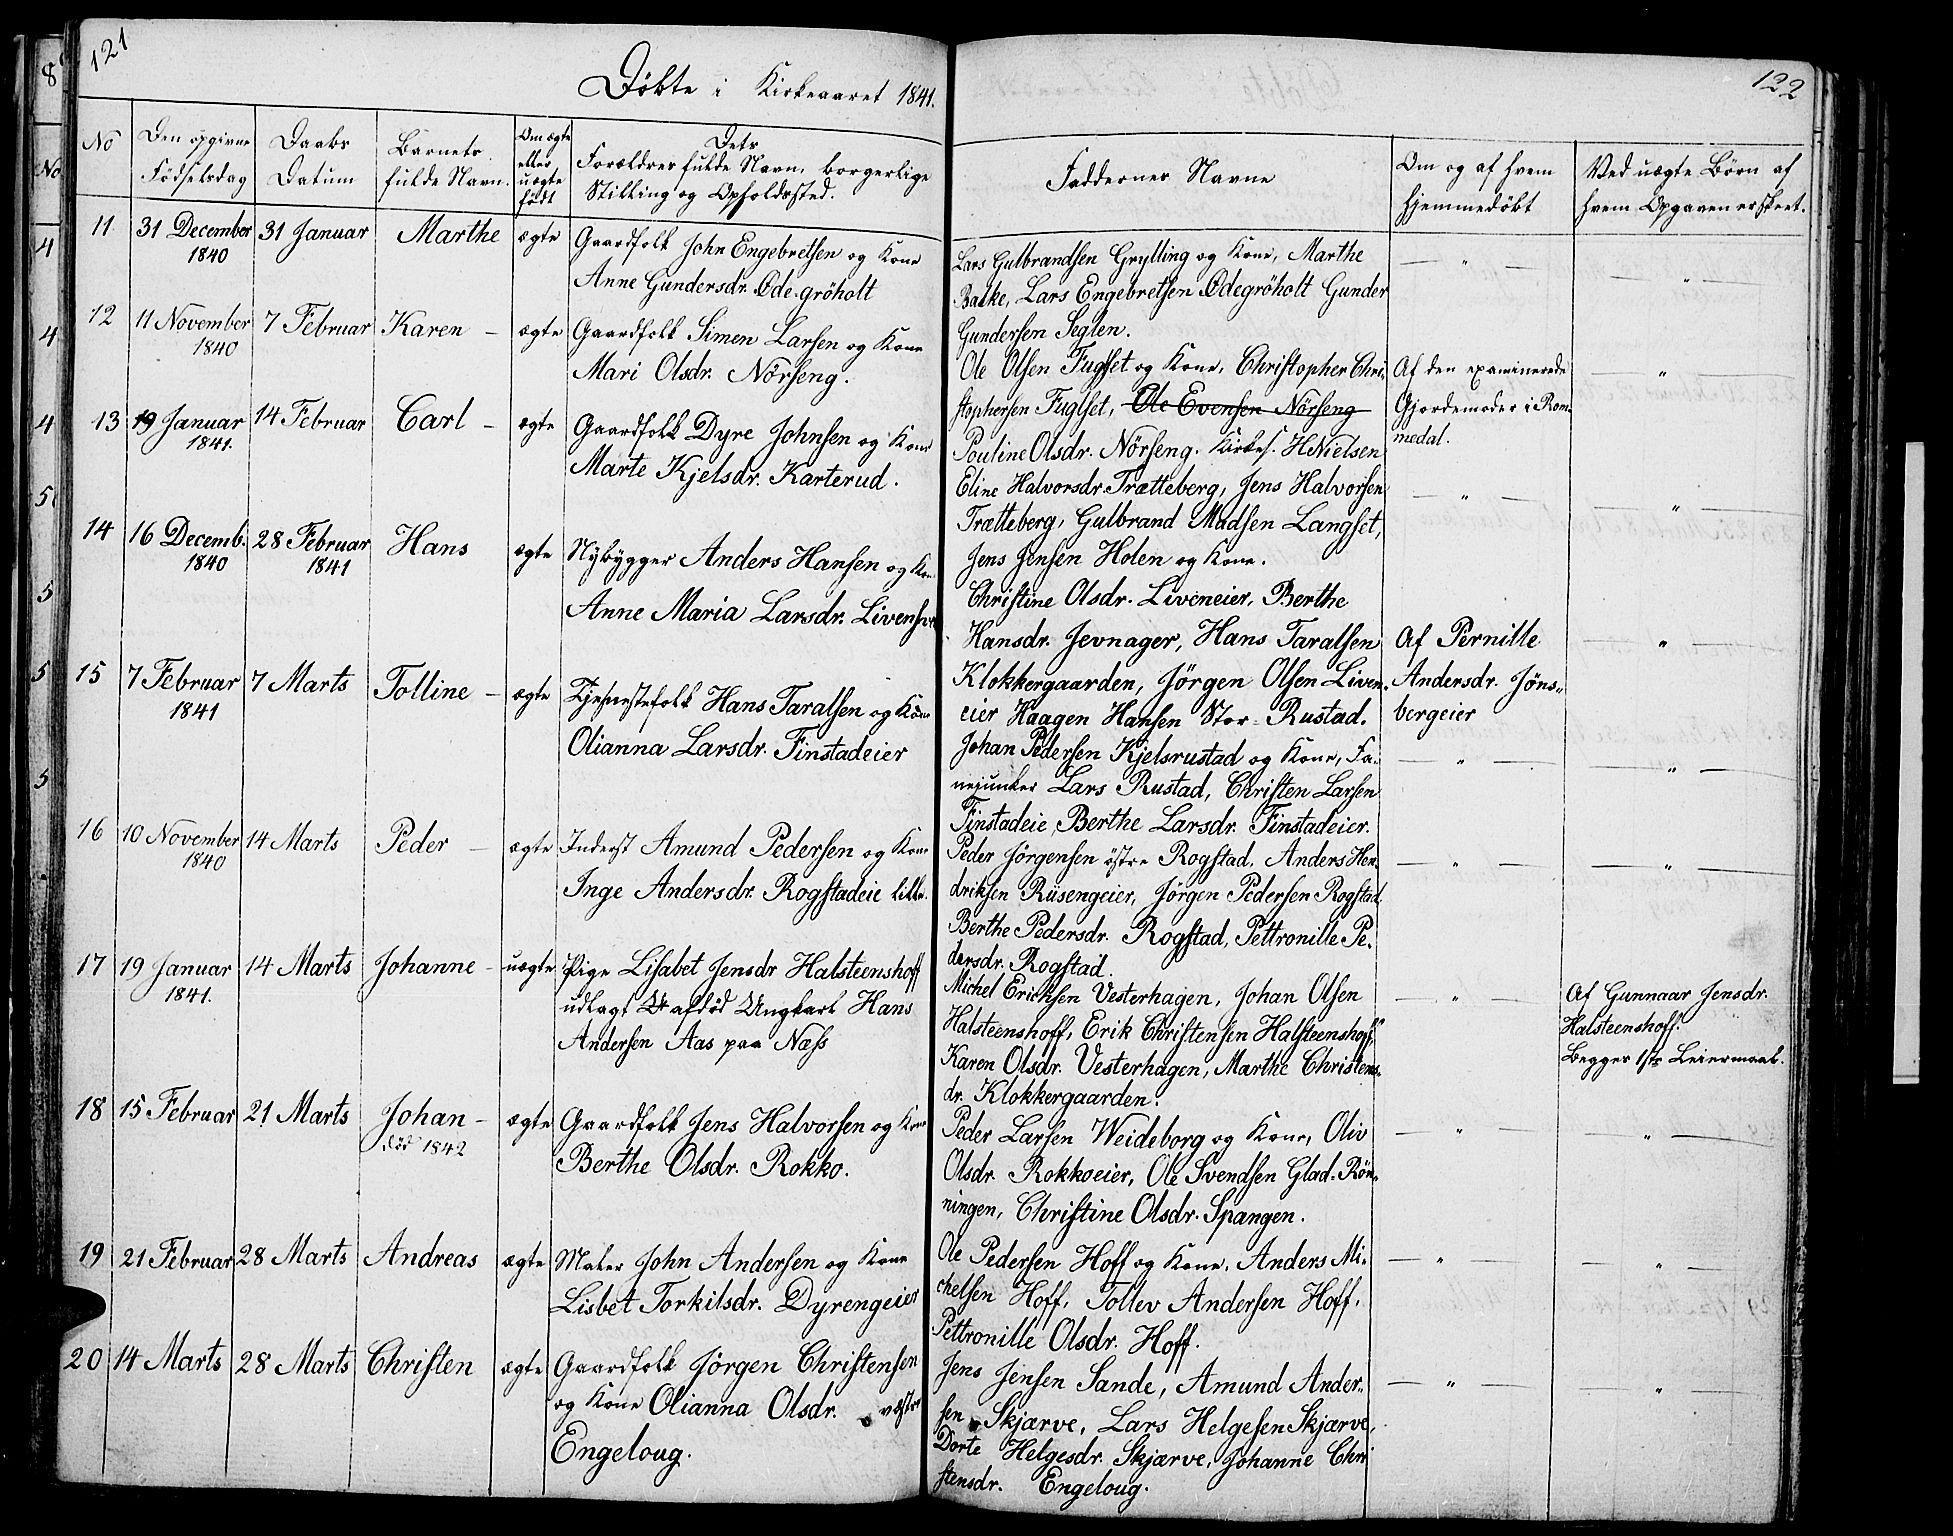 121
Døbte i Kirkeaaret 1841.
No
Den opgivne
Fødselsdag
Daabs
Datum
Barnets
fulde Navn.
Om ægte
eller
uægte
født
Dets
Forældres fulde Navn, borgerlige
Stilling og Opholdssted.
11 31 December 31 Januar Marthe ægte Gaardfolk John Engebretsen og Kone
1840 Anne Gundersdr. Ødegröholt
12 11 November 7 Februar Karen – ægte Gaardfolk Simen Larsen og Kone
1840 Mari Olsdr. Nörseng.
13 19 Januar 14 Februar Carl – ægte Gaardfolk Dyre Johnsen og Kone
1841. Marte Kjelsdr. Karterud.
14 16 Decemb. 28 Februar Hans ægte Nybygger Anders Hansen og Kone
1840 1841 Anne Maria Larsdr.
15 7 Februar 7 Marts Tolline – ægte Tjenestefolk Hans Taralsen og Kone
1841 Olianna Larsdr. Finstadeier
16 10 November 14 Marts Peder – ægte Inderst Amund Pedersen og Kone
1840 Inge Andersdr. Rogstadeie lille.
17 19 Januar 14 Marts Johanne – uægte Pige Lisabet Jensdr Halsteenshoff
1841. udlagt afdød Ungkarl Hans
Andersen Aas paa Næss
18 15 Februar 21 Marts Johan – ægte Gaardfolk Jens Halvorsen og Kone
død 1842 Berthe Olsdr. Rokko.
19 21 Februar 28 Marts Andreas ægte Maler John Andersen og Kone
Lisbet Torkilsdr. Dyrengeier
20 14 Marts 28 Marts Christen ægte Gaardfolk Jörgen Christensen
og Kone Olianna Olsdr. væstre
Engeloug.
122
Faddernes Navne
Om og af hvem
hjemmedøbt
Ved uægte Børn af
hvem Opgaven er skeet.
Lars Gulbrandsen Grylling og Kone, Marthe
Bakke, Lars Engebretsen Ödegröholt Gunder
Gundersen Seglen.
Ole Olsen Fuglset og Kone, Christopher Chri-
stophersen Fuglset, Ole Evensen Nörseng
Pouline Olsdr. Nörseng. Kirkes. HNielsen
Af den examinerede
Gjordemoder i Rom-
medal.
Eline Halvorsdr Trætteberg, Jens Halvorsen
Trætteberg, Gulbrand Madsen Langset,
Jens Jensen Holen og Kone.
Christine Olsdr. Liveneier, Berthe
Hansdr. Jevnager, Hans Taralsen
Klokkergaarden, Jörgen Olsen Liven-
eier Haagen Hansen Stor-Rustad.
Af Pernille
Andersdr. Jöns-
bergeier
Johan Pedersen Kjelsrustad og Kone, Fa-
nejunker Lars Rustad, Christen Larsen
Finstadeie, Berthe Larsdr. Finstadeier.
Peder Jörgensen östre Rogstad, Anders Hen-
driksen Rüsengeier, Jörgen Pedersen Rogstad,
Berthe Pedersdr. Rogstad, Pettronille Pe-
dersdr. Rogstad.
Michel Ericksen Vesterhagen, Johan Olsen
Halsteenshoff, Erik Christensen Halsteenshoff,
Karen Olsdr. Vesterhagen, Marthe Christens-
dr. Klokkergaarden.
Af Gunnaar Jensdr.
Halsteenshoff.
Begges 1ste Leiermaal.
Peder Larsen Weideborg og Kone, Oliv
Olsdr. Rokkoeier, Ole Svendsen Glad-Rön-
ningen, Christine Olsdr. Spangen.
Ole Pedersen Hoff og Kone, Anders Mi-
chelsen Hoff, Tollev Andersen Hoff,
Pettronille Olsdr. Hoff.
Jens Jensen Sande, Amund Ander-
sen Skjærve, Lars Helgesen Skjærve,
Dorte Helgesdr. Skjærve, Johanne Chri
stensdr. Engeloug.